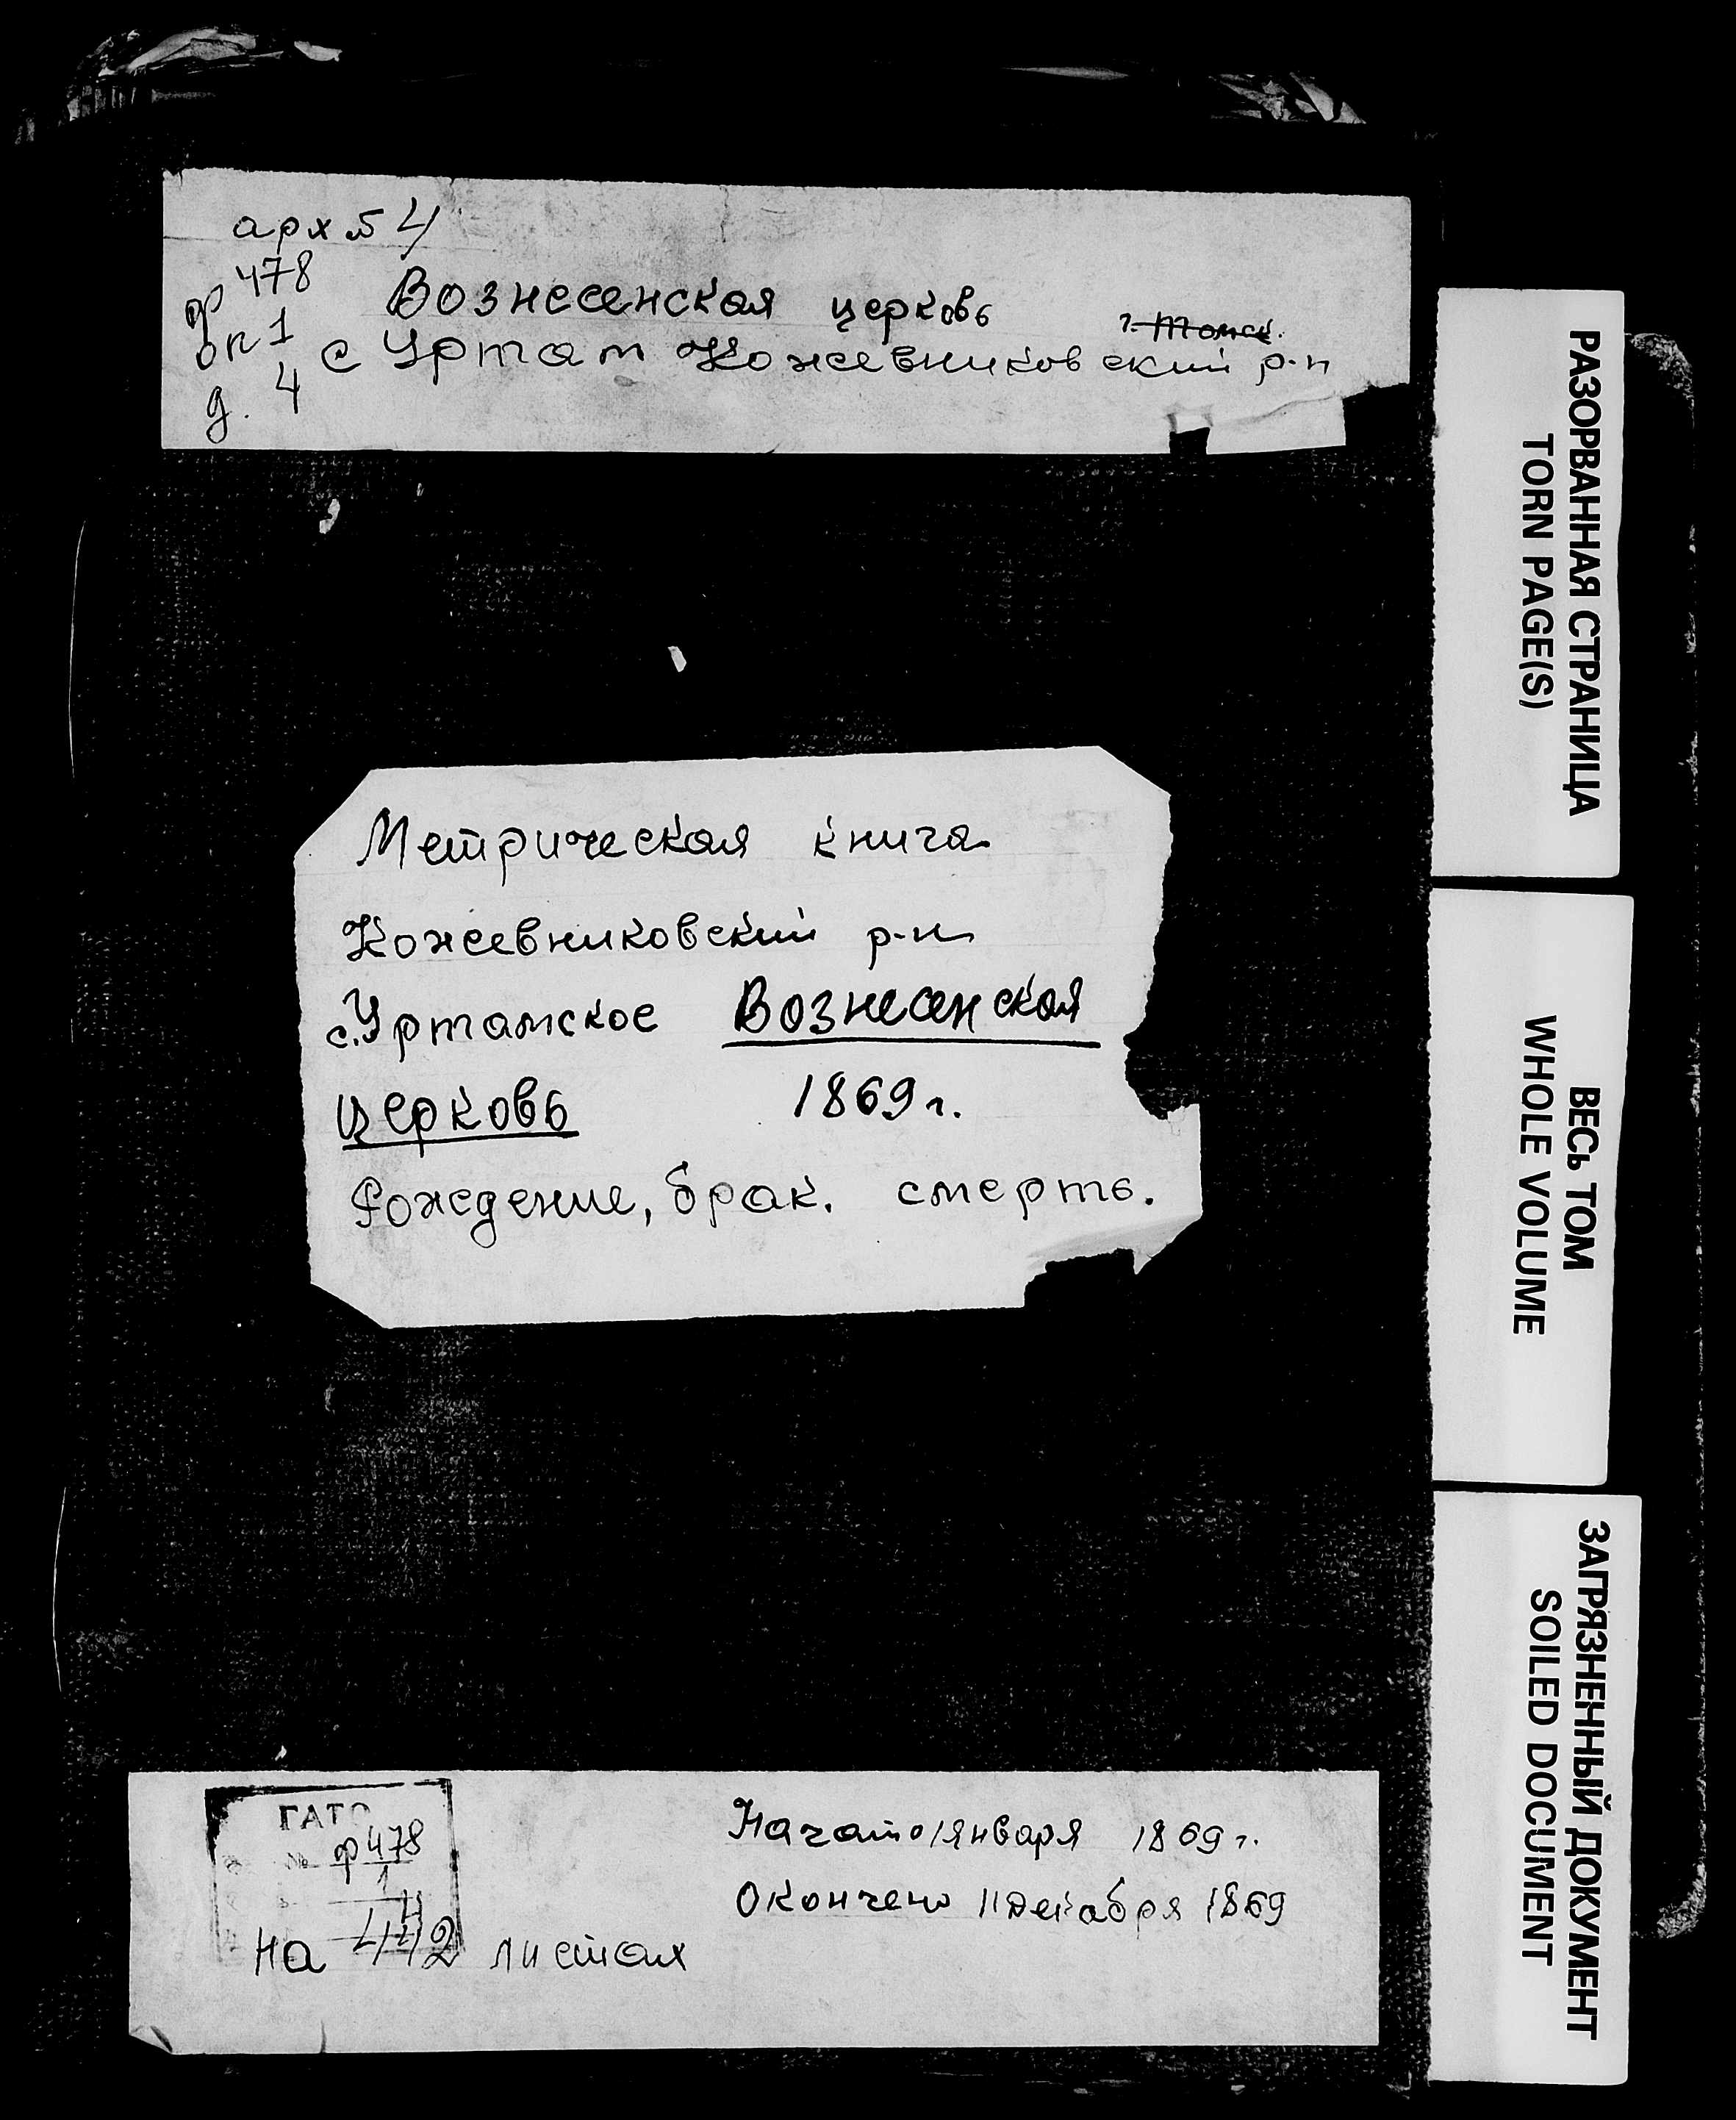 арх № 4
ф 478
Вознесенская церковь
г. Томск.
оп 1
с Уртам Кожевниковский р-н
д. 4
Метрическая книга
Кожевниковский р-н
с. Уртамское Вознесенская
церковь 1869 г.
Рождение, брак. смерть.
ГАТО
№ ф 478
1
4
на 442 листах
Начато 1 января 1869 г.
Окончено 11 декабря 1869
РАЗОРВАННАЯ СТРАНИЦА
TORN PAGE(S)
ВЕСЬ ТОМ
WHOLE VOLUME
ЗАГРЯЗНЕННЫЙ ДОКУМЕНТ
SOILED DOCUMENT